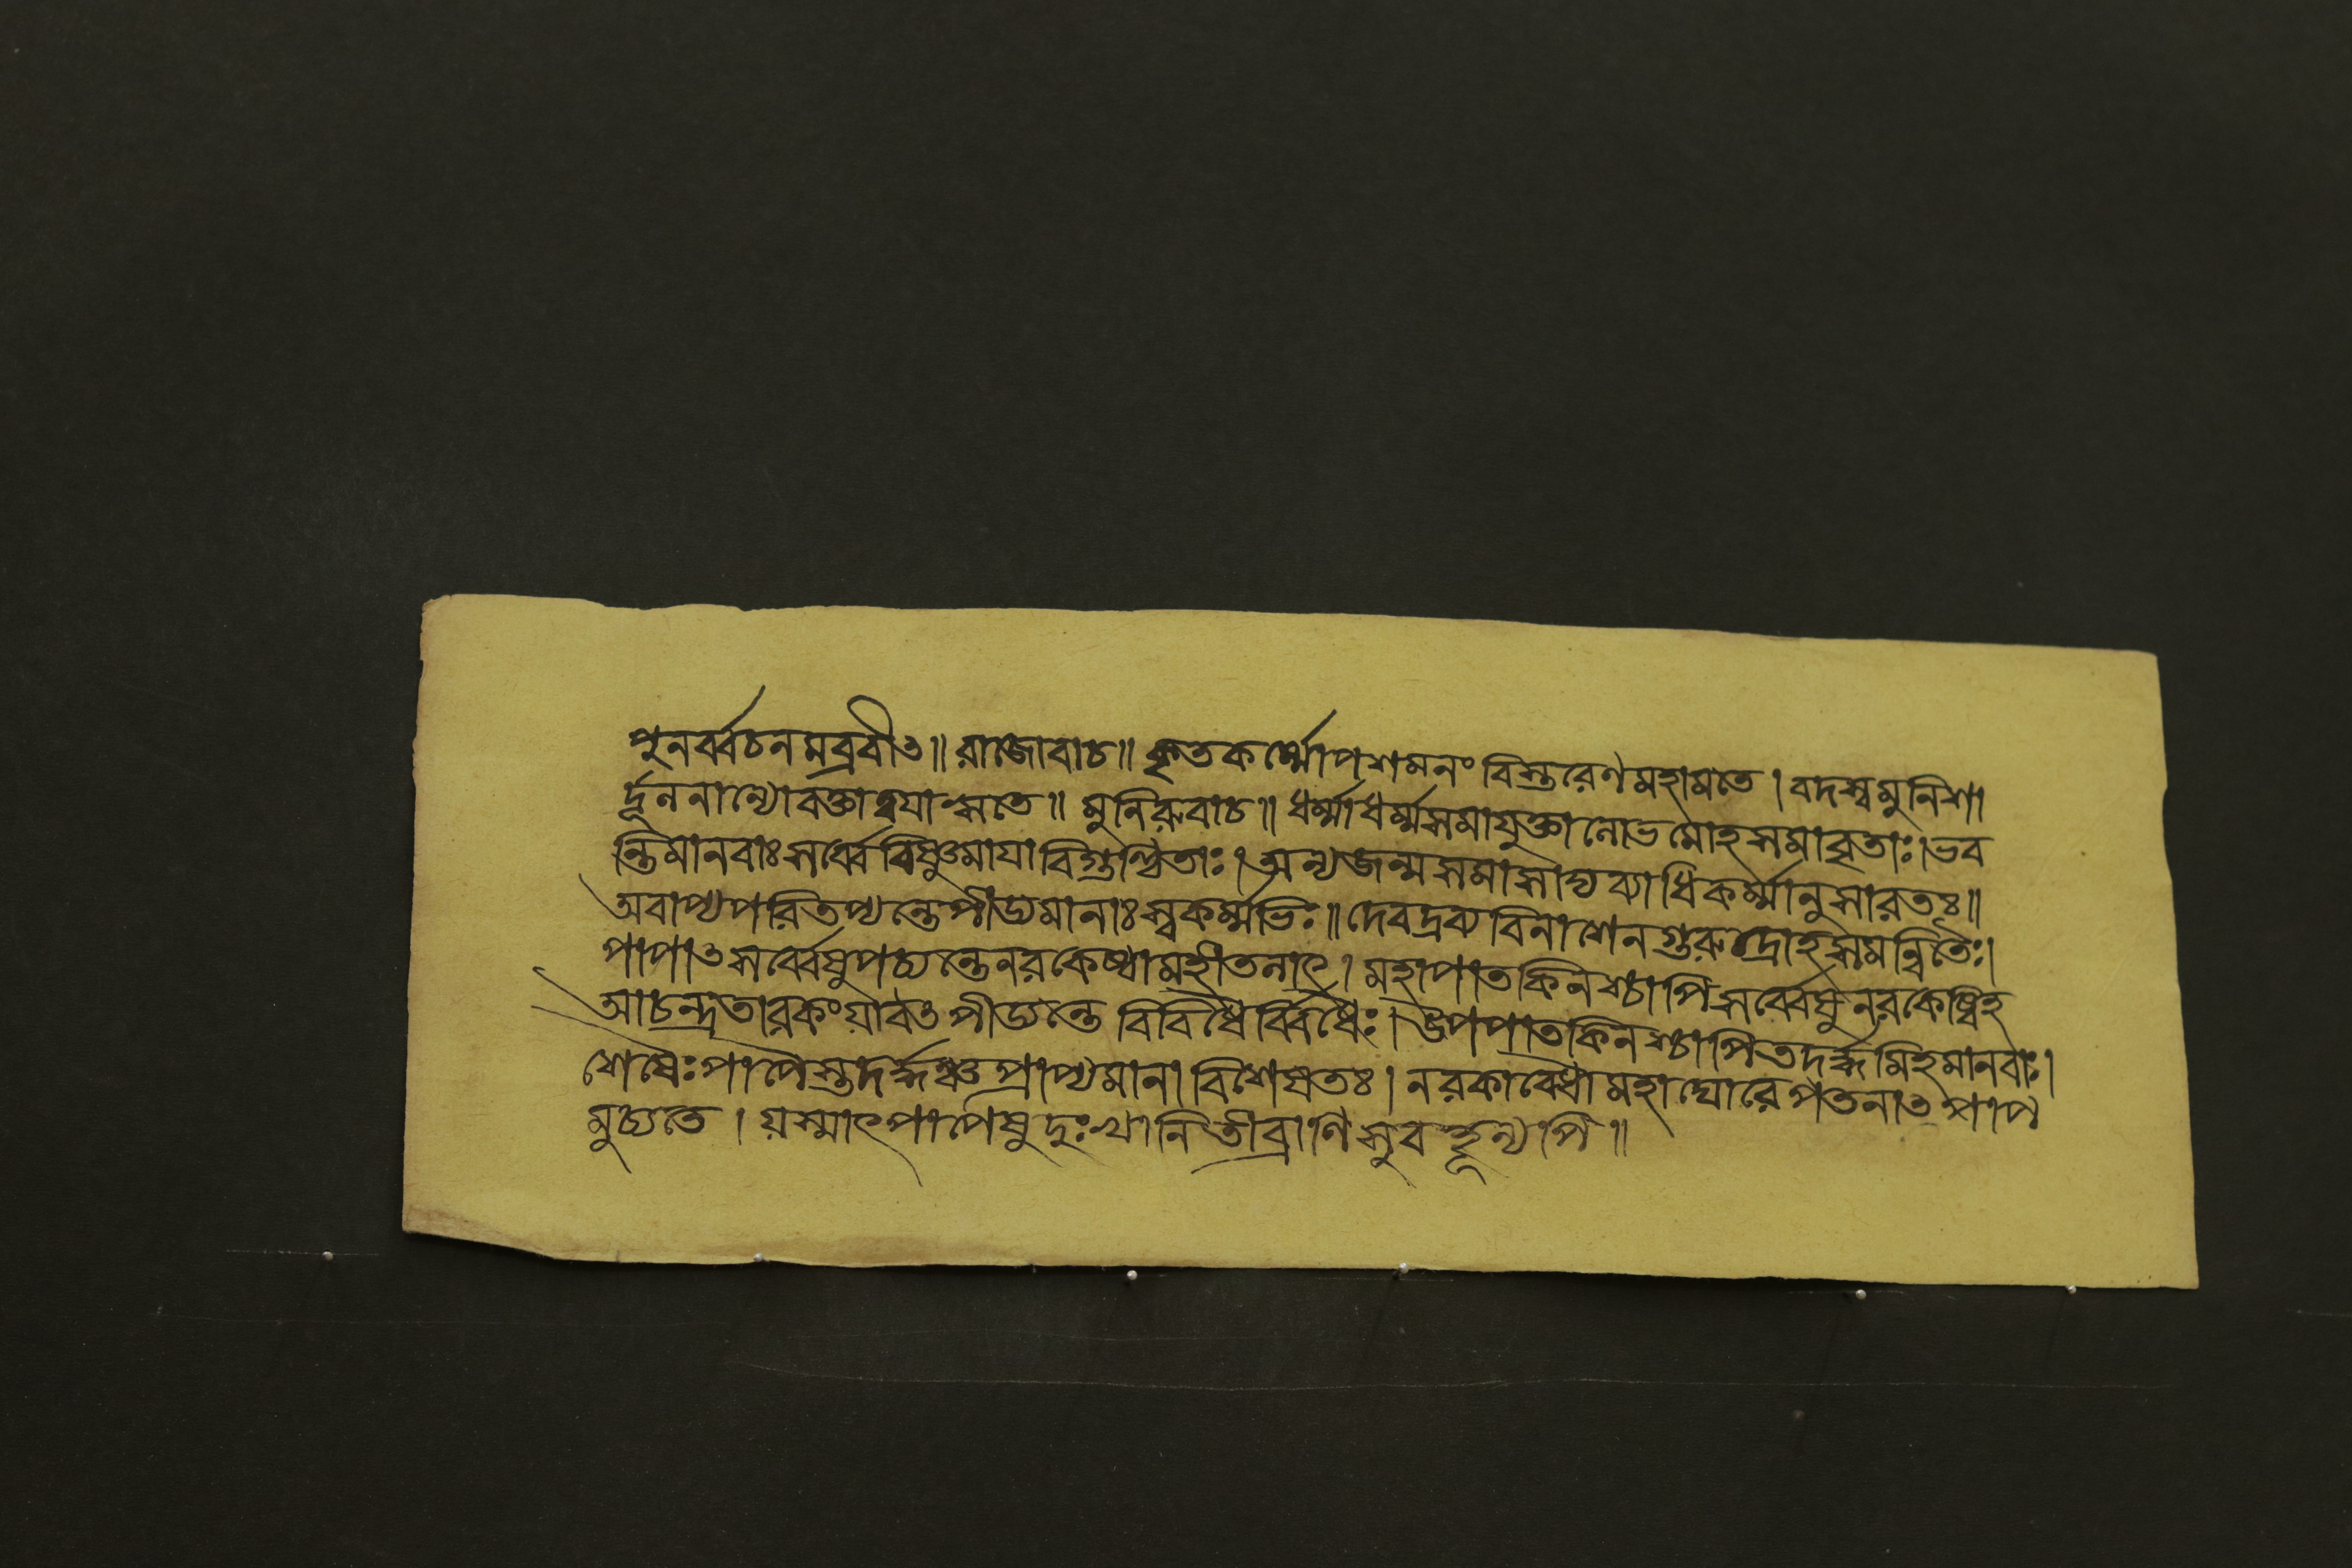 পুনর্ব্বচনমব্রবীৎ॥ রাজোবাচ॥ কৃতকর্ম্মোপশমনং বিস্তরেণ মহামতে। বদস্ব মুনিশা
র্দ্দূল নান্যো বক্তা ত্বয়া সতে॥ মুনিরুবাচ॥ ধর্ম্মাধর্ম্মসমাযুক্তা লোভমোহসমাবৃতাঃ। ভব
ন্তি মানবাঃ সর্ব্বে বিষ্ণুমায়াবিগুণ্ঠিতাঃ। অন্যজন্ম সমাসাদ্য ব্যাধিকর্ম্মানুসারতঃ॥
অবাপ্য পরিতপ্যন্তে পীড্যমানাঃ স্বকর্ম্মভিঃ॥ দেবদ্রব্যবিনাশেন গুরুদ্রোহসমন্বিতৈঃ।
পাপাৎ সর্ব্বেষু পচ্যন্তে নরকেষ্বামহীতলাৎ। মহাপাতকিনশ্চাপি সর্ব্বেষু নরকেষ্বিহ
আচন্দ্রতারকং যাবৎ পীড্যন্তে বিবিধৈর্ব্বিধৈঃ। উপপাতকিনশ্চাপি তদর্দ্ধমিহ মানবাঃ।
শেষৈঃ পাপৈস্তদর্দ্ধঞ্চ প্রাপ্যমানা বিশেষতঃ। নরকাবেধা মহাঘোরে পতনাৎ পাপ
মুচ্যতে। যস্মাৎ পাপেষু দুঃখানি তীব্রাণি সুবহূন্যপি॥